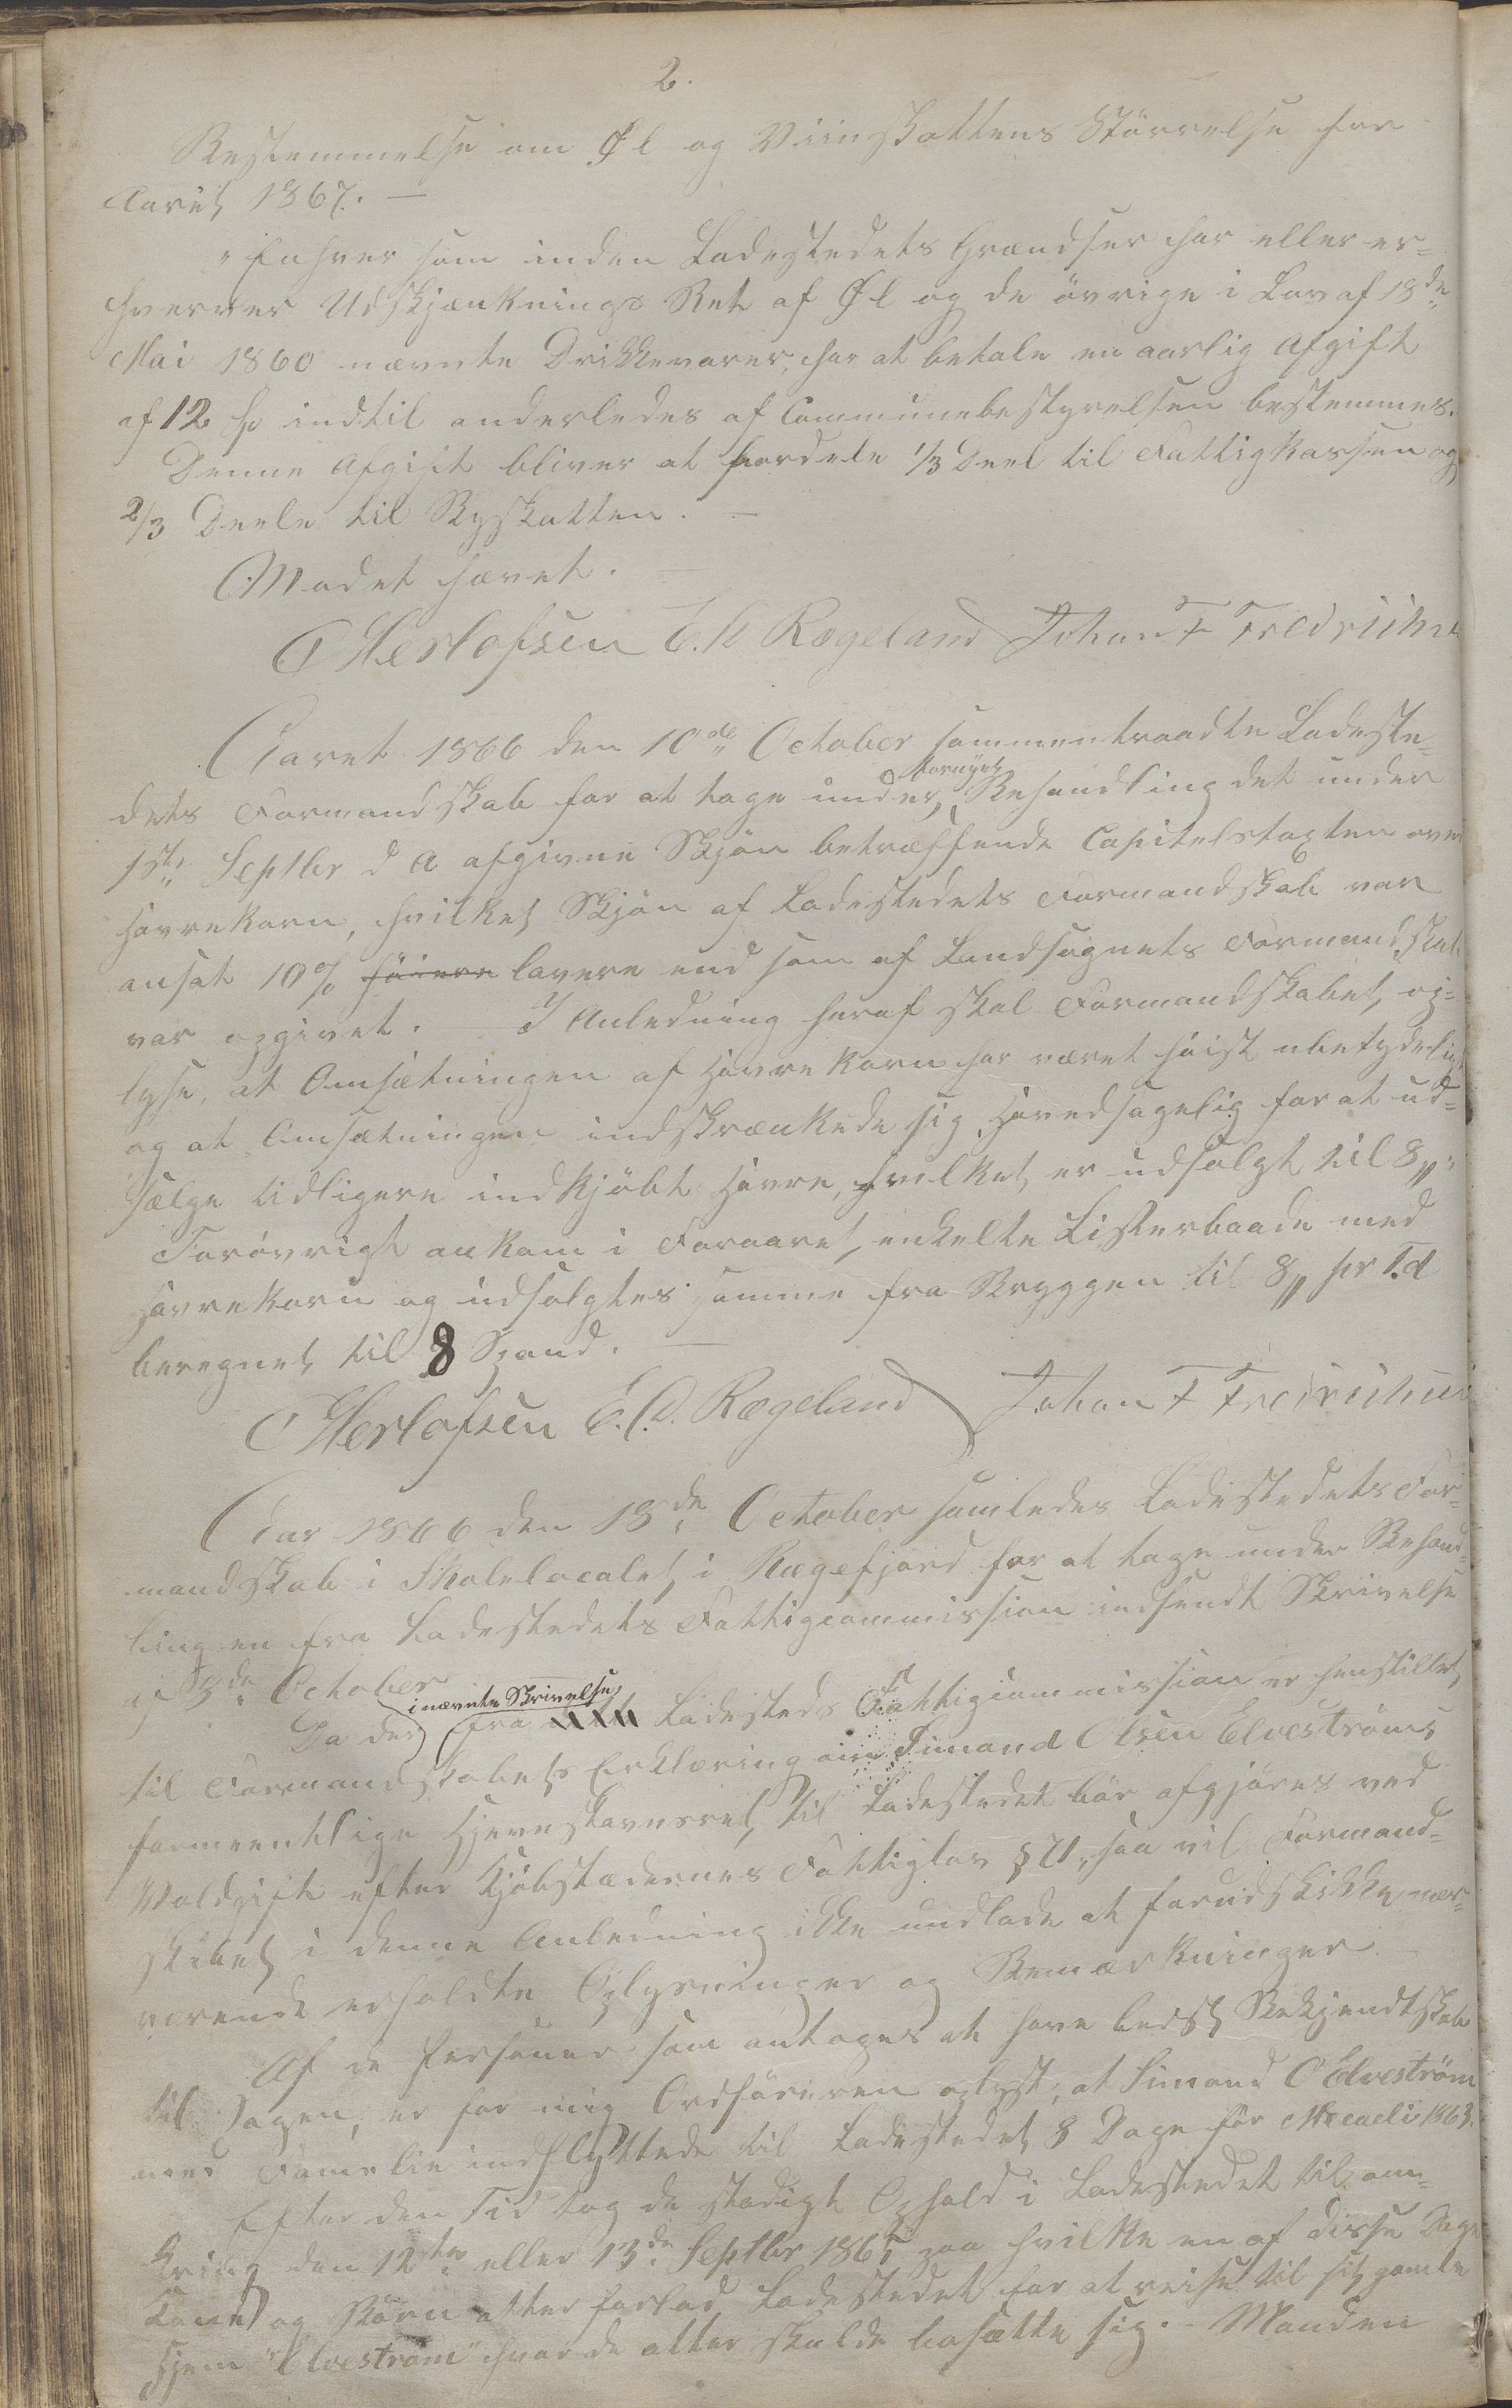 2.
Bestemmelse om Øl og Viinskattens Störrelse for
Aaret 1867. —
"Enhver som inden Ladestedets Grændser har eller er-
hverver Udskjænknings Ret af Øl og de övrige i Lov af 18de
Mai 1860 nævnte Drikkevarer, har at betale en aarlig Afgift
af 12 Sp indtil anderledes af Communebestyrelsen bestemmes.
Denne Afgift bliver at fordele 1/3 Deel til Fattigkassen og
2/3 Deele til Byskatten. —
Mødet hævet. —
C Herlofsen E. D. Rægeland Johan F Fredrichsen
Aaret 1866 den 10de October sammentraadte Ladeste-
dets Formandskab for at tage under fornyet Behandling det under
1ste Septbr d A afgivne Skjön betræffende Capitelstaxten over
Havrekorn, hvilket Skjön af Ladestedets Formandskab var
ansat 10% höiere lavere end som af Landsognets Formandskab
var opgivet. I Anledning heraf skal Formandskabet op-
lyse, at Omsætningen af Havrekorn har været höist ubetydelig,
og at Omsætningen indskrænkede sig hovedsagelig for at ud-
sælge tidligere indkjöbt Havre, hvilket er udsolgt til 8
Forövrigt ankom i Foraaret enkelte Listerbaade med
Havrekorn og udsolgtes samme fra Bryggen til 8 pr Td
beregnet til 8 Spand. —
C Herlofsen E. D. Rægeland Johan F Fredrichsen
Aar 1866 den 18de October samledes Ladestedets For-
mandskab i Skolelocalet i Rægefjord for at tage under Behand-
ling en fra Ladestedets Fattigcommission indsendt Skrivelse
af 3de October
Da der i nævnte Skrivelse fra Ladesteds Fattigcommission er henstillet
til Formandskabets Erklæring om Simond Olsen Elveströms
formeentlige Hjemstavnsret til Ladestedet bör afgjöres ved
Voldgift efter Kjöbstædernes Fattiglov § 71, saa vil Formand-
skabet i denne Anledning ikke undlade at forudskikke nær-
værende erholdte Oplysninger og Bemærkninger.
Af de Personer som antages at have bedst Bekjendtskab
til Sagen, er for mig Ordföreren oplyst, at Simond O Elveström
med Familie indflyttede til Ladestedet 8 Dage för Micaeli 1863.
Efter den Tid tog de stadigt Ophold i Ladestedet til om-
kring den 12te eller 13de Septbr 1865 paa hvilke en af disse Dage
Kone og Börn atter forlod Ladestedet for at reise til sit gamle
Hjem "Elveström" hvor de atter skulde bosætte sig. - Manden